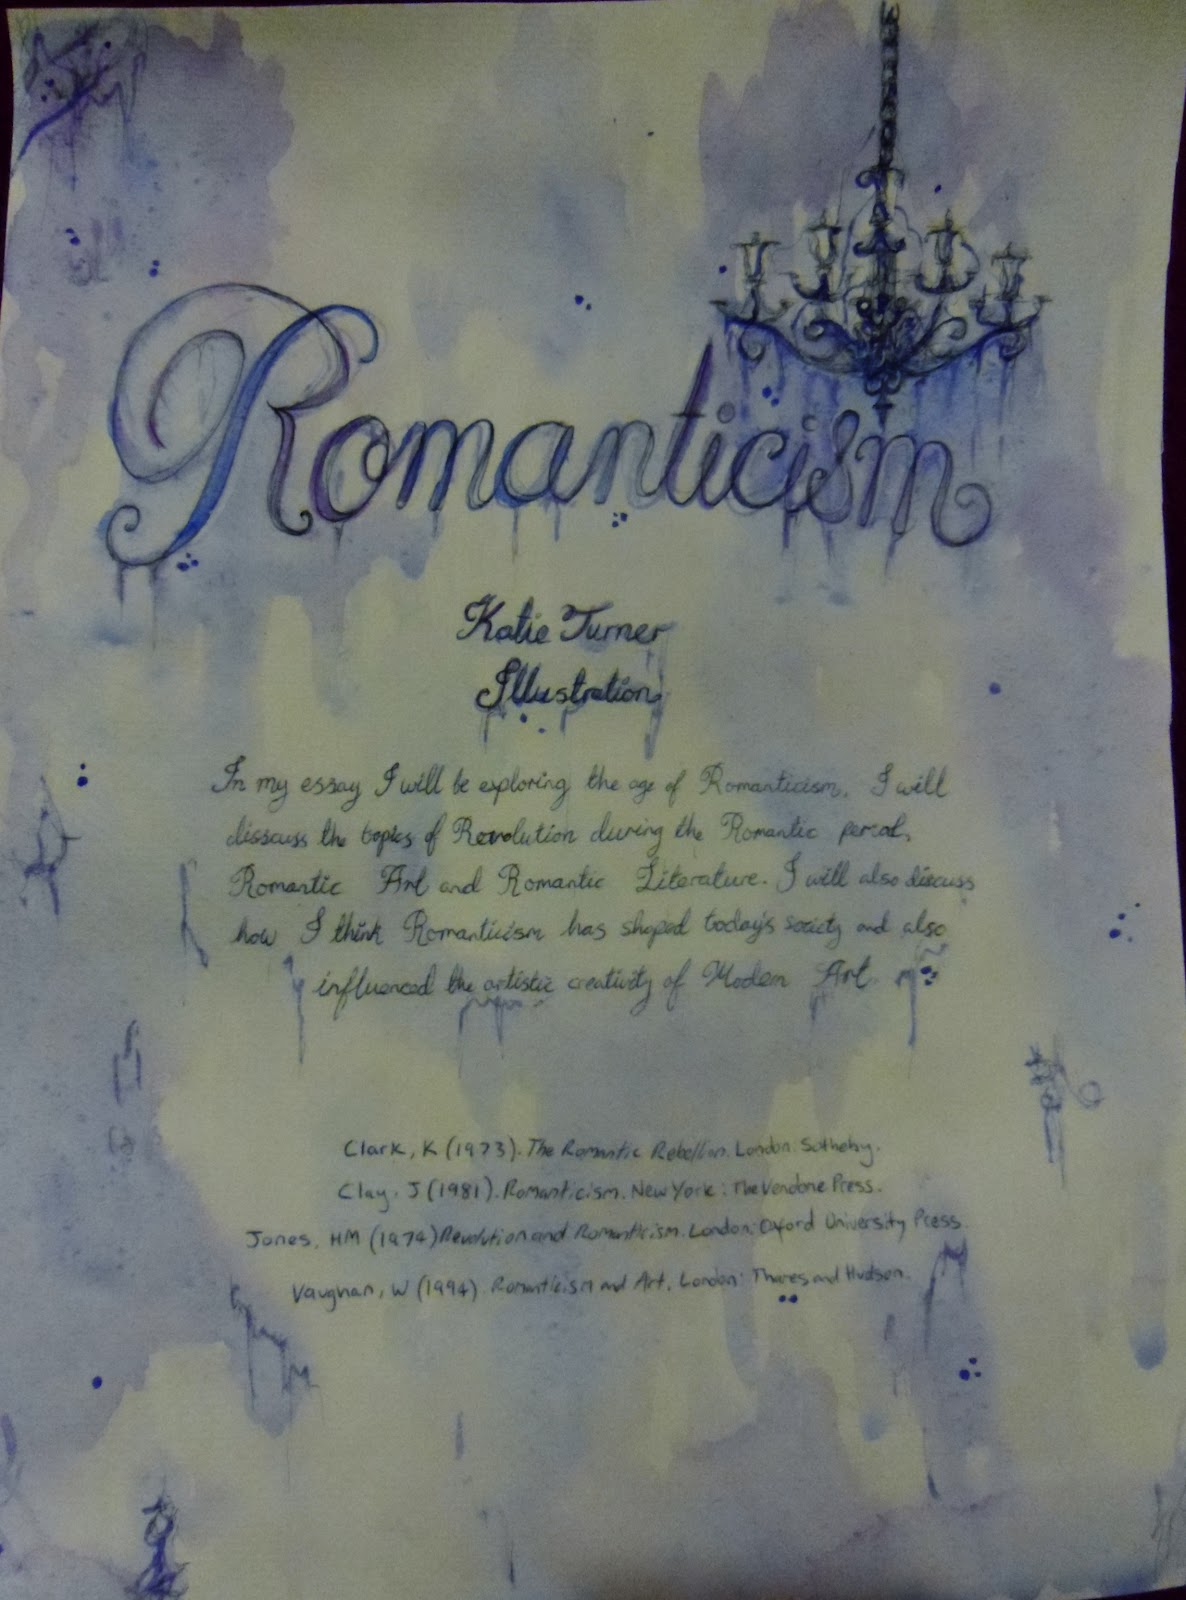 Romanticism
Katie Turner
Illustration
In my essay I will be exploring the age of Romanticism. I will
disscuss the topics of Revolution during the Romantic periat,
Romantic Art and Romantic Literature. I will also discuss
how I think Romanticism has shaped today's society and also
influenced the artistic creativity of Modern Art.
Clark, K (1973). The Romantic Rebellion. London: Sotheby.
Clay. J (1981). Romanticism. New York: The Vendone Press.
Jones. HM (1974) Revolution and Romanticism. London: Oxford University Press.
Vaughan, W (1994). Romanticism and Art. London: Thames and Hudson.